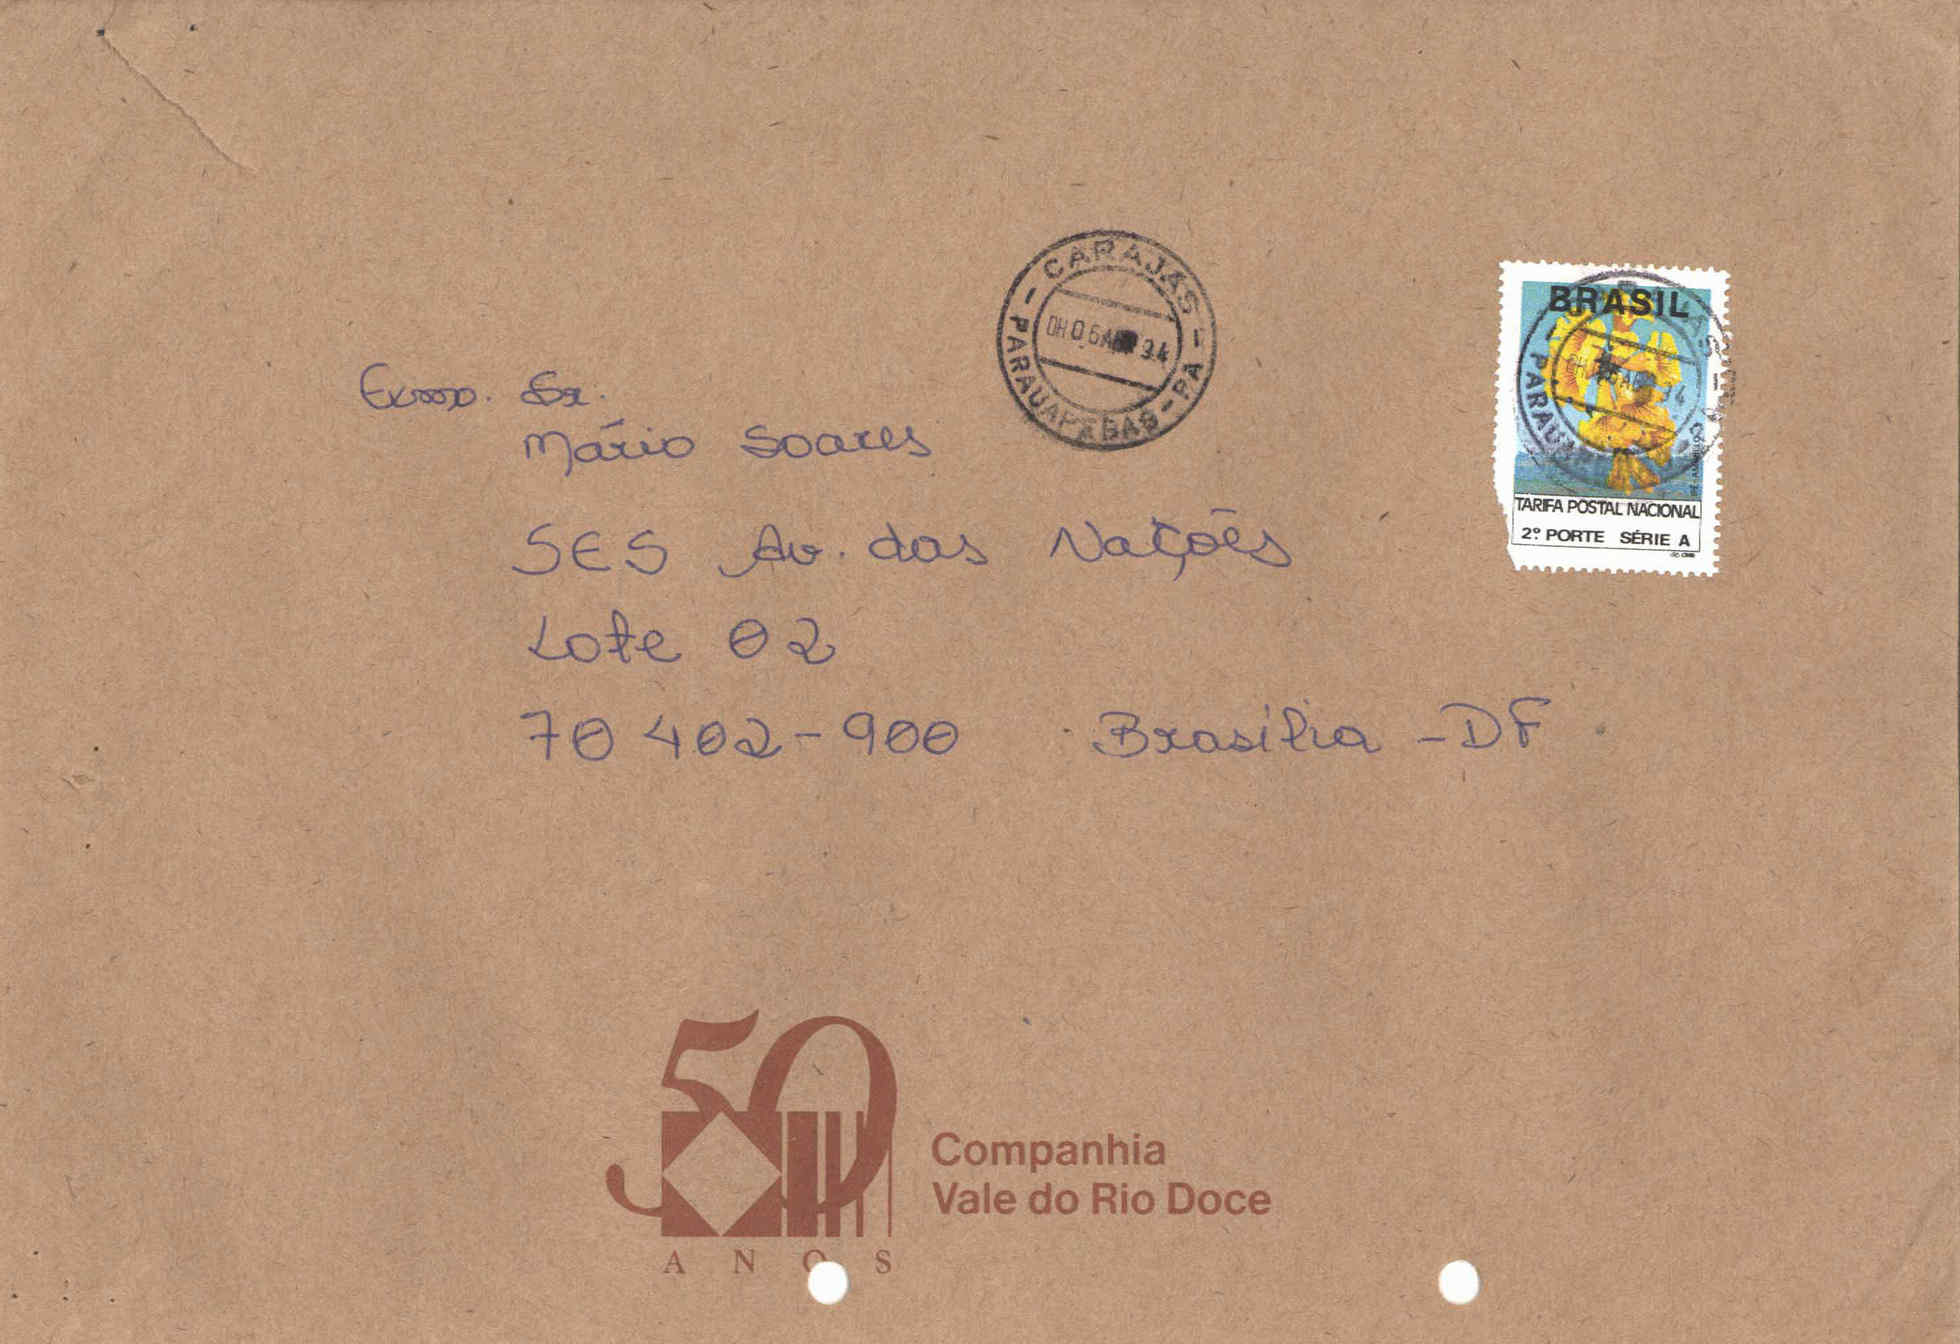 CARAJÁS
PARAUAPEBAS-PA
06 94
BRASIL
TARIFA POSTAL NACIONAL
2º PORTE SÉRIE A
Exmo. Sr.
Mário Soares
SES Av. das Nações
Lote 02
70402-900 Brasília-DF
50
ANOS
Companhia
Vale do Rio Doce